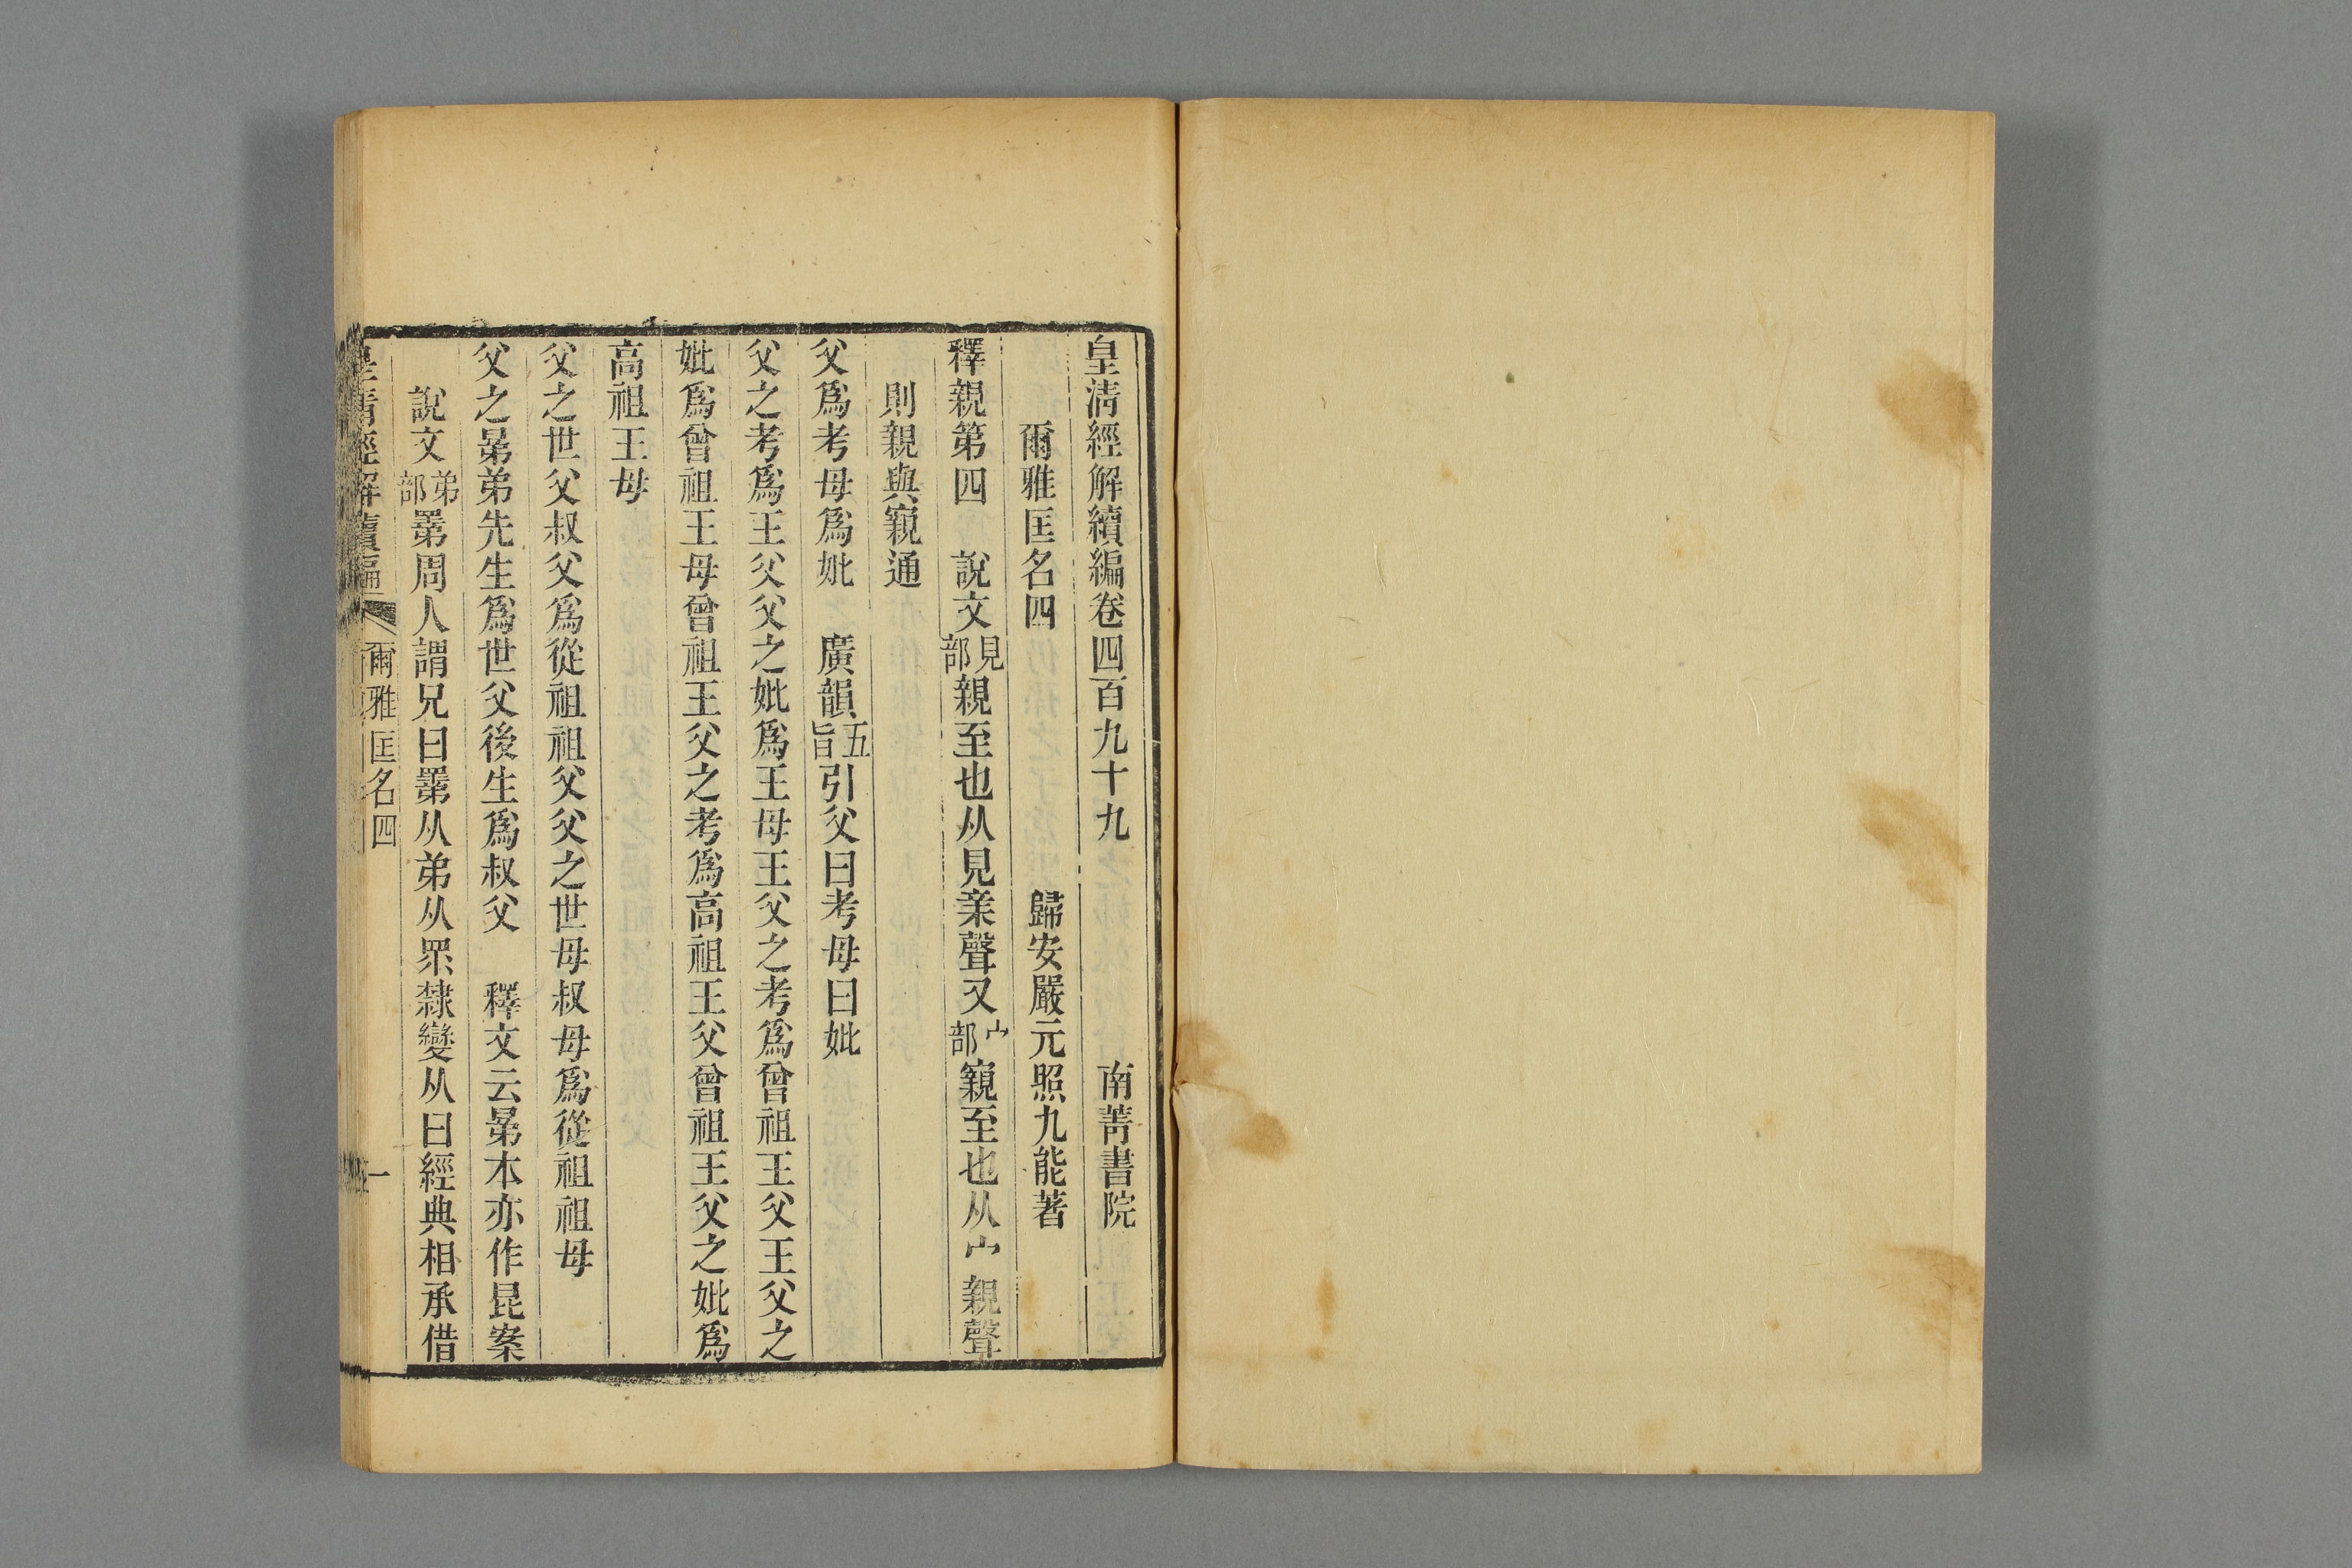 皇淸經解續編卷四百九十九　南菁書院
爾雅匡名四　歸安嚴元照九能著
釋親第四　說文見部親至也从見亲聲又宀部寴至也从宀親聲
則親與寴通
父爲考母爲妣　廣韻五旨引父曰考母曰妣
父之考爲王父父之妣爲王母王父之考爲曾祖王父王父之
妣爲曾祖王母曾祖王父之考爲高祖王父曾祖王父之妣爲
高祖王母
父之世父叔父爲從祖祖父父之世母叔母爲從祖祖母
父之晜弟先生爲世父後生爲叔父　釋文云晜本亦作昆案
說文弟部𥊽周人謂兄曰𥊽从弟从眔隸變从曰經典相承借
皇清經解續編　爾雅匡名四　一